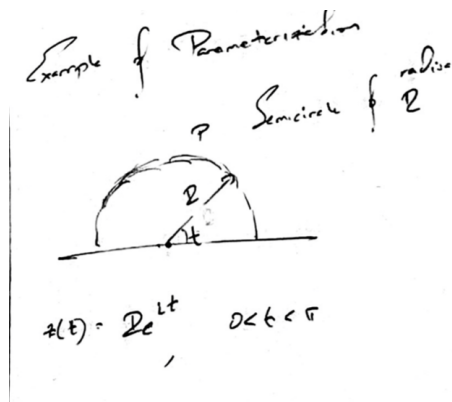 Example of Parameterisation
Semicircle of radius
R
P
R
t
z(t) = Re^{it}, 0<t<π